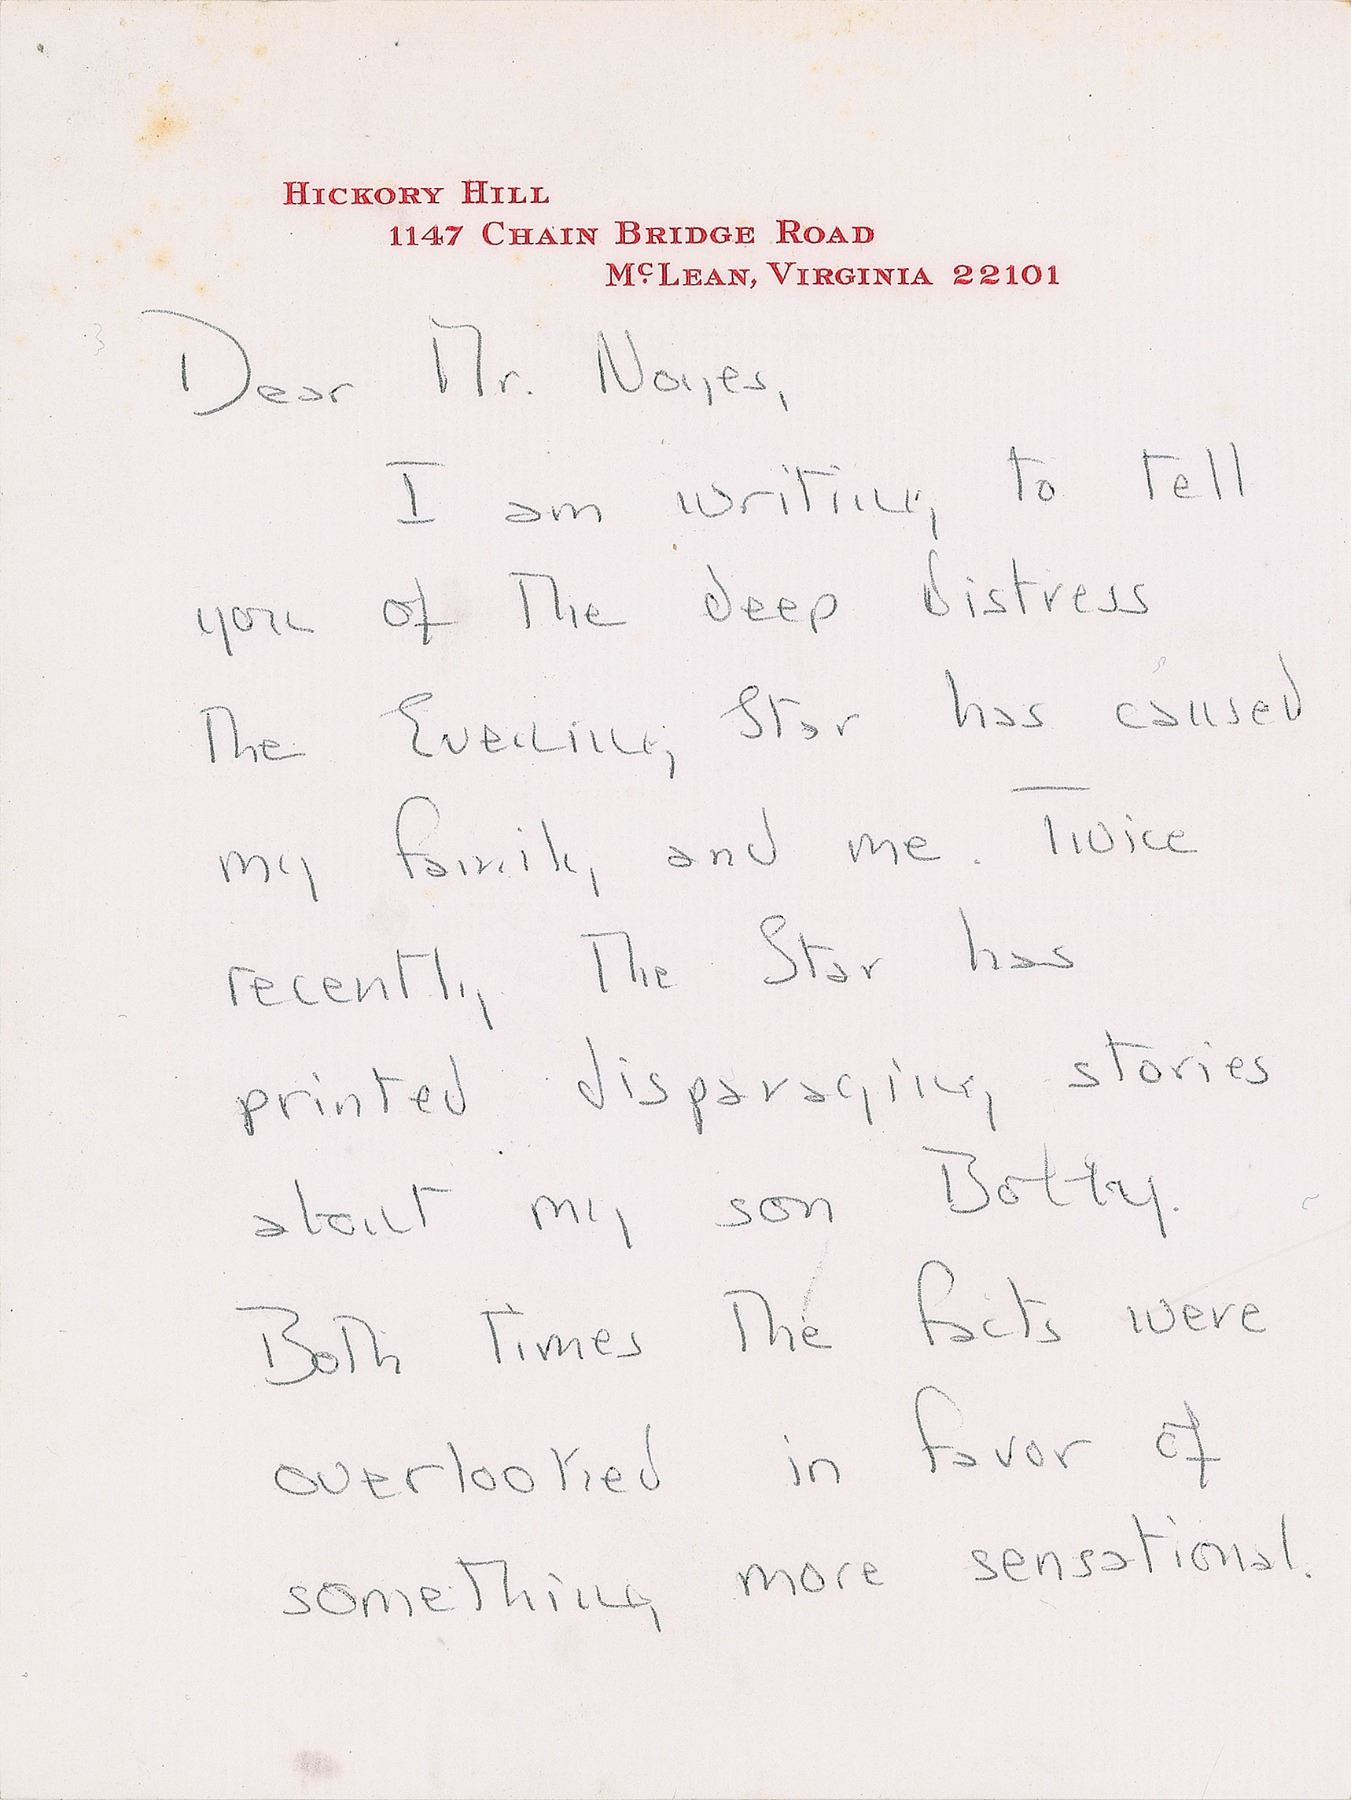 HICKORY HILL
1147 CHAIN BRIDGE ROAD
McLEAN, VIRGINIA 22101
Dear Mr. Noyes,
I am writing to tell
you of the deep distress
the Evening Star has caused
my family and me. Twice
recently the Star has
printed disparaging stories
about my son Bobby.
Both times the facts were
overlooked in favor of
something more sensational.